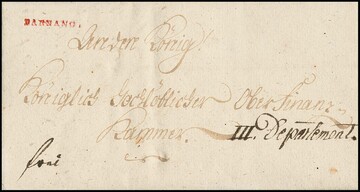 BARNANG.
An den König!
Königlich Hochlöblicher Ober Finanz
Kammer. III. Departement.
frei